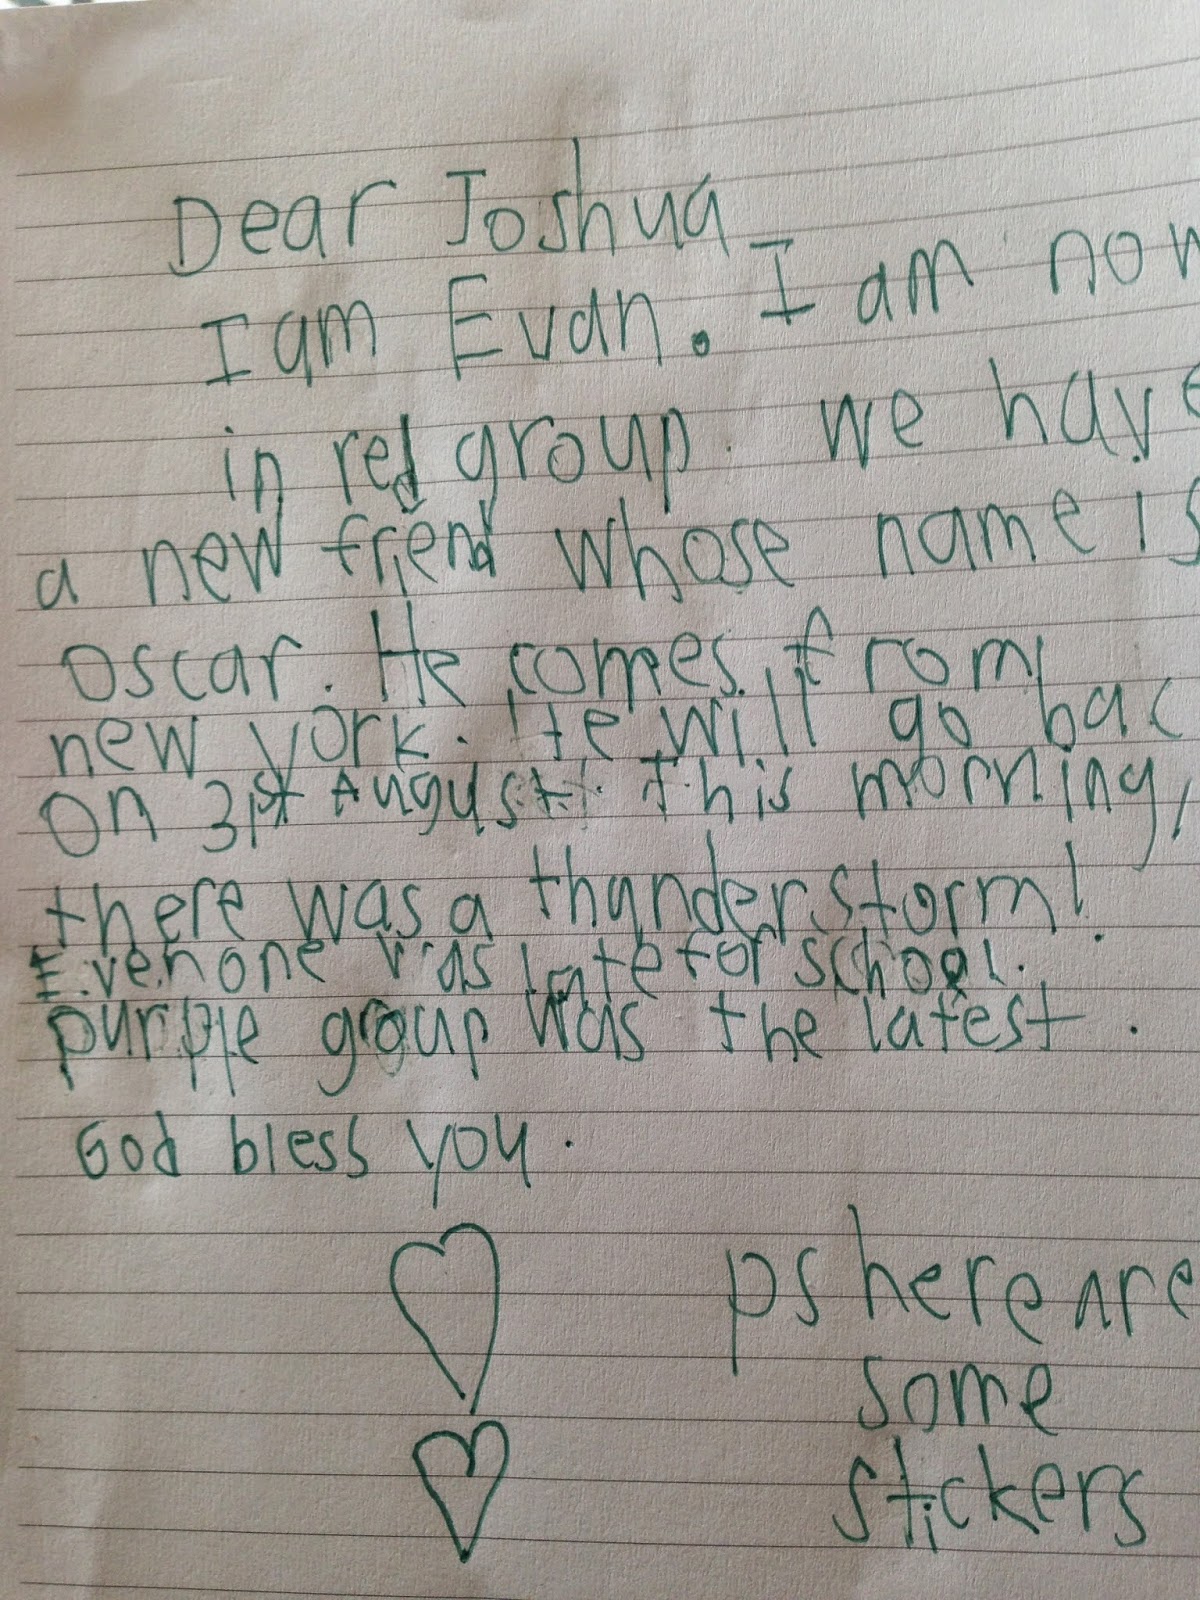 Dear Joshua
I am Evan. I am now
in red group. we have
a new friend whose name is
oscar. He comes from
new york. He will go bac
on 31st August. This morning,
there was a thunderstorm!
Everone was late for school.
purple group was the latest.
God bless you.
ps here are
some
stickers